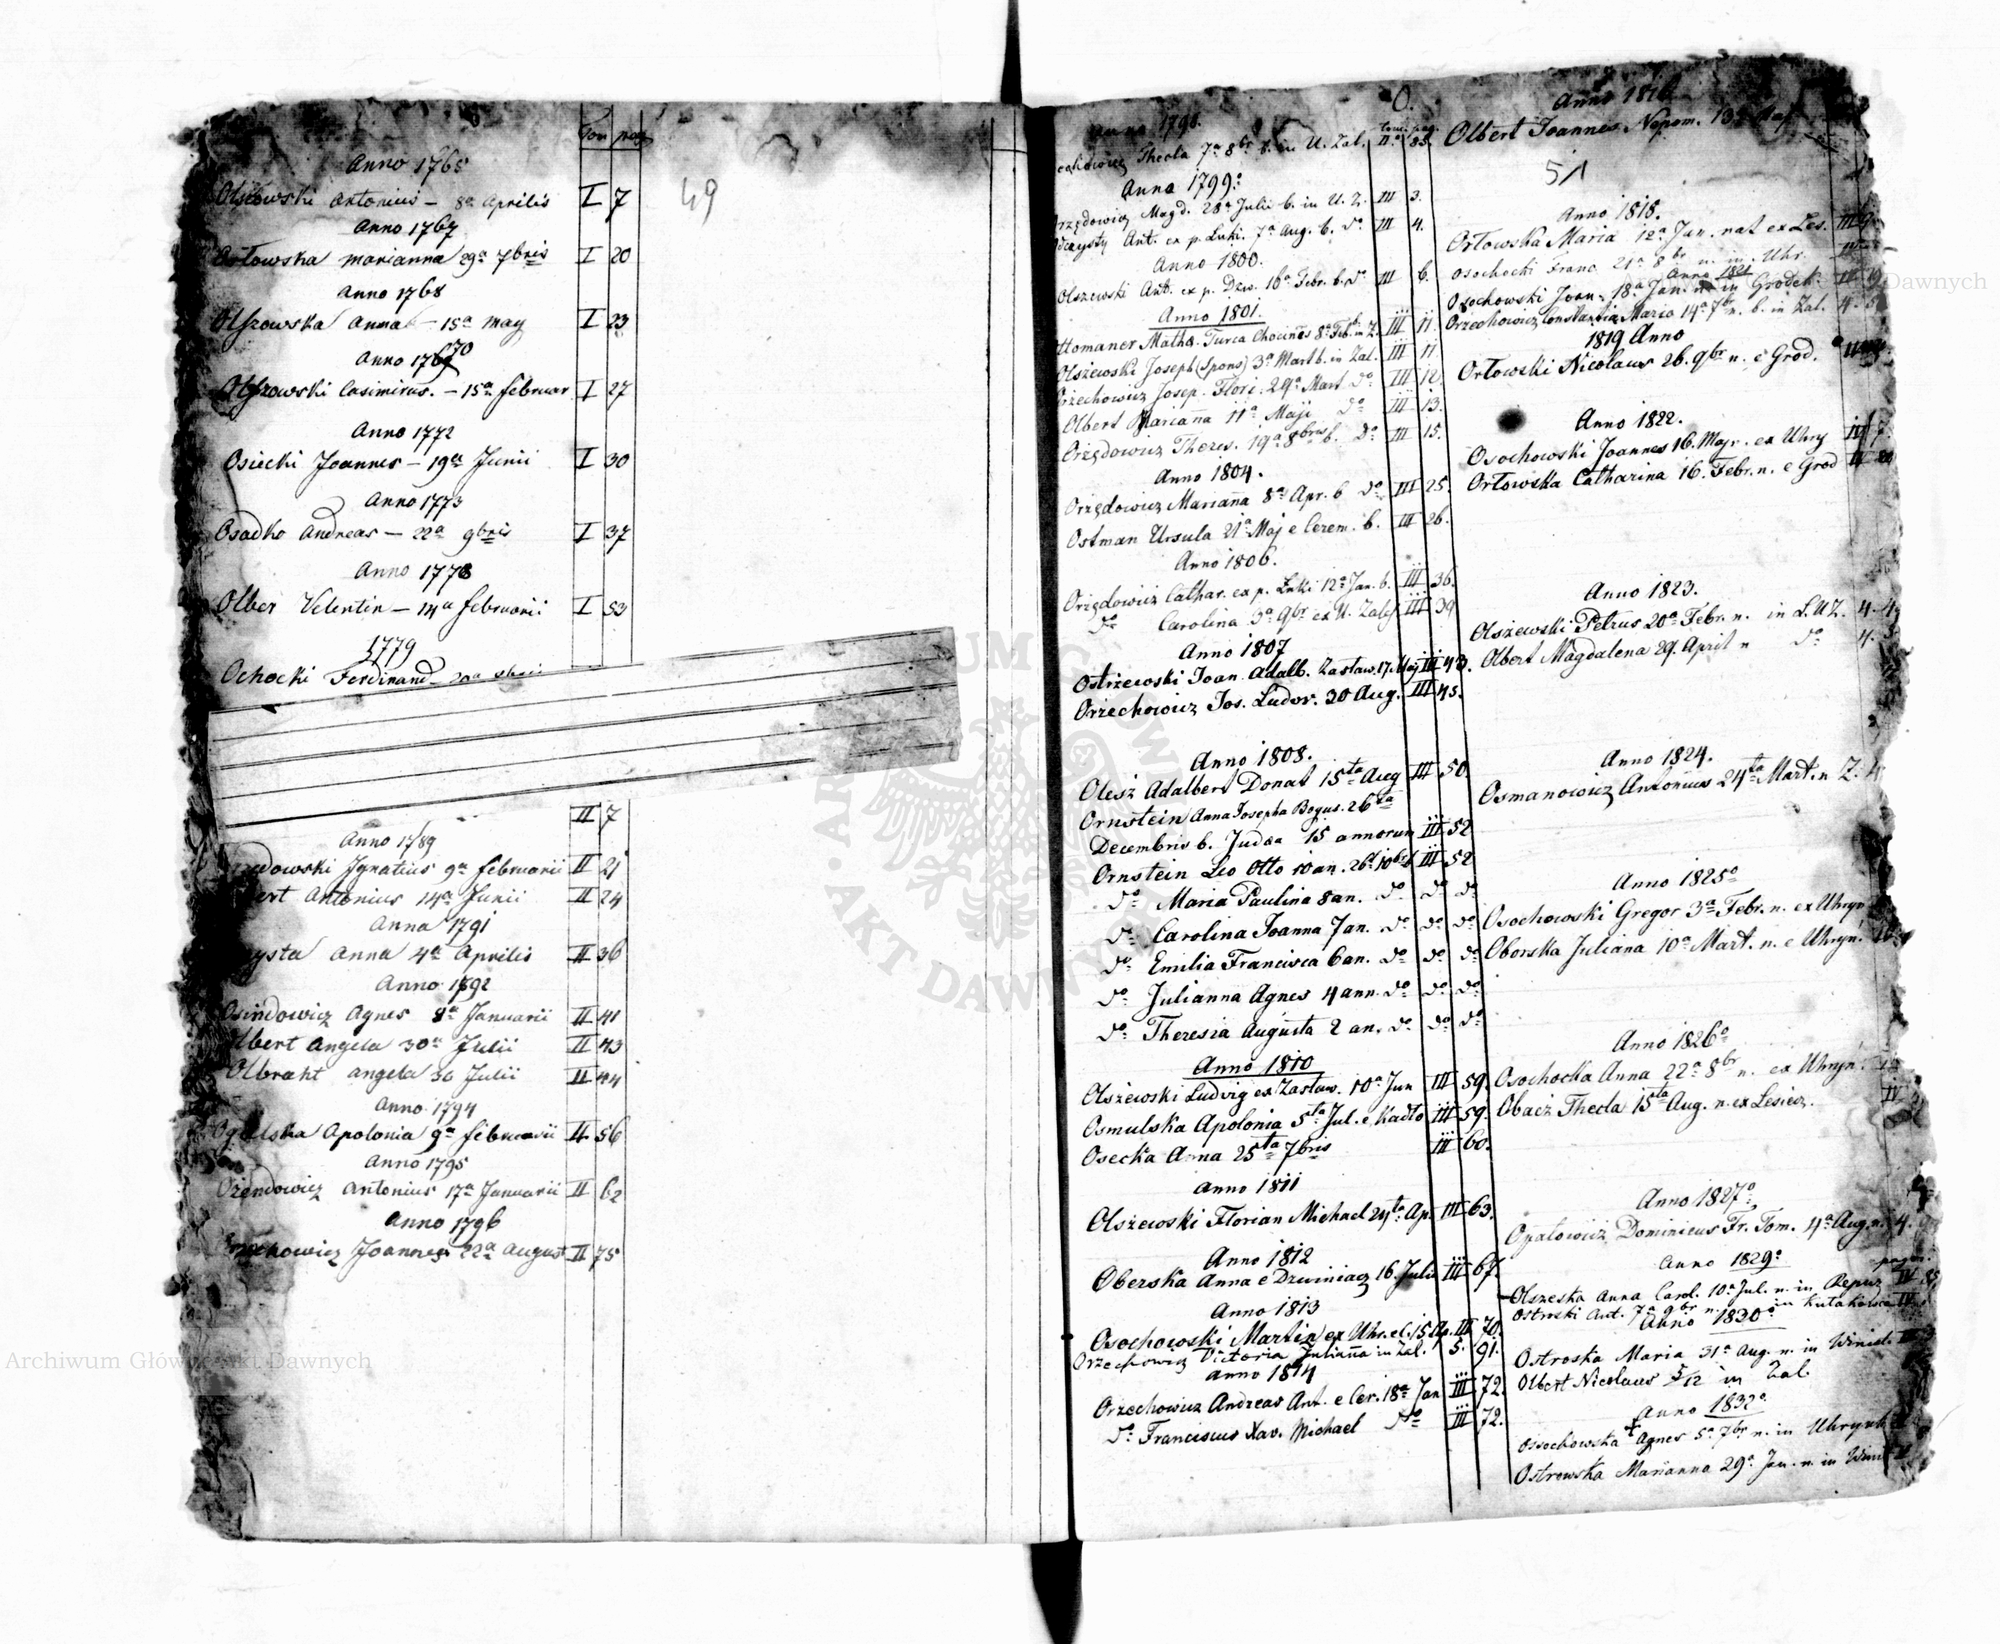 Tom pag
Anno 1765
Olszowski Antonius – 8a Aprilis I 7
49
Anno 1767
Orłowska Marianna 29a 7bris I 20
Anno 1768
Olszowska Anna – 15a May I 23
Anno 1770
Olszowski Casimirus. – 15a Februar I 27
Anno 1772
Osiecki Joannes – 19a Junii I 30
Anno 1773
Osadko Andreas – 22a 9bris I 37
Anno 1778
Olber Velentin – 14a Februarii I 53
1779
Ochocki Ferdinand
II 7
Anno 1789
Ignatius 9a Februarii II 21
Antonius 14a Junii II 24
Anna 1791
Anna 4a Aprilis II 36
Anno 1792
Osindowicz Agnes 8a Januarii II 41
Olbert Angela 30a Julii II 43
Olbracht Angela 30 Julii II 44
Anno 1794
Apolonia 9a Februarii II 56
Anno 1795
Ozendowicz Antonius 17a Januarii II 62
Anno 1796
Joannes 22a August II 75
O.
Anno 1798.
tom. pag.
Thecla 7a 8br b. in U. Zal. II. 85.
Anna 1799.
Magd. 28a Julii b. in U. Z. III 3.
Ant. ex p. Luki. 7a Aug. b. do III 4.
Anno 1800.
Olszewski Ant. ex p. Dzw. 16a Febr. b. do III 6.
Anno 1801.
Ottomaner Maths. Turca Chocimes 8a Feb. in Z. III 11.
Olszewski Joseph (Spons) 3a Mart b. in Zal. III 11
Orzechowicz Josep. Flori. 29a Mart do III 12
Olbert Marianna 11a Maji do III 13.
Orzędowicz Theres. 19a 8bris b. do III 15.
Anno 1804.
Orzędowicz Marianna 8a Apr. b do III 25.
Ostman Ursula 21a Maj e Cerem. b. III 26.
Anno 1806.
Orzędowicz Cathar. ex p. Luki 12a Jan. b. III 36.
do Carolina 3a 9br ex U. Zales III 39
Anno 1807
Ostrzewski Joan. Adalb. Zastaw. 17. May III 43.
Orzechowicz Jos. Ludov. 30 Aug. III 45.
Anno 1808.
Olesz Adalbert Donat 15ta Aug III 50.
Ornstein Anna Josepha Bogus. 26ta
Decembris b. Judaa 15 annorum III 52
Ornstein Leo Otto 10 an. 26t 10br b III 52
do Maria Paulina 8 an. do do do
do Carolina Joanna 7 an. do do do
do Emilia Francisca 6 an. do do do
do Julianna Agnes 4 ann. do do do
do Theresia Augusta 2 an. do do do
Anno 1810
Olszewski Ludvig ex Zastaw. 10a Jun III 59.
Osmulska Apolonia 5ta Jul. e Kadło III 59.
Osecka Anna 25ta 7bris III 60.
Anno 1811
Olszewski Florian Michael 24ta Ap. III 63.
Anno 1812
Oberska Anna e Dzwiniacz 16. Julii III 67.
Anno 1813
Osochowski Martin ex Uhr. el. 15 Ap. III 70.
Orzechowicz Victoria Julianna in Zal. 5. 91.
Anno 1814
Orzechowicz Andreas Ant. e Cer. 18a Jan III 72.
do Franciscus Xav. Michael do III 72.
Anno
Olbert Joannes Nepom. 13a
51
Anno 1818.
Orłowska Maria 12a Jan. nat ex Les. III 9
Osochocki Franc 21a 8br n. in Uhr. IV
Anno 1821
Osochowski Joan. 18a Jan. n. in Grodek IV 19
Orzechowicz Constantia Maria 14a 7br n. b. in Zal. 4.
1819 Anno
Orłowski Nicolaus 26. 9br n. e Grod.
Anno 1822.
Osochowski Joannes 16. Maj. ex Uhry IV 7.
Orłowska Catharina 16. Febr. n. e Grod IV
Anno 1823.
Olszewski Petrus 20a Febr. n. in L.U.Z. 4. 4
Olbert Magdalena 29. April n do 4.
Anno 1824.
Osmanowicz Antonius 24ta Mart. n Z. 4
Anno 1825o
Osochowski Gregor 3a Febr. n. ex Uhryn
Oborska Juliana 10a Mart. n. e Uhryn.
Anno 1826o
Osochocka Anna 22a 8br n. ex Uhryn. IV
Obacz Thecla 15ta Aug. n. ex Lesiecz. IV
Anno 1827o
Opatowicz Dominicus Fr. Tom. 4a Aug. n. 4.
Anno 1829o
Olszeska Anna Carol. 10a Jul. n. in Repuz IV 85
Ostroski Ant. 7a 9br n. in Kutakowce IV
Anno 1830o
Ostroska Maria 31a Aug. n. in
Olbert Nicolaus 5/12 in Zal
Anno 1832o
Ossochowska Agnes 5a 7br n. in Uhrynk
Ostrowska Marianna 29a Jan. n. in
ARCHIWUM GŁÓWNE AKT DAWNYCH
Archiwum Główne Akt Dawnych